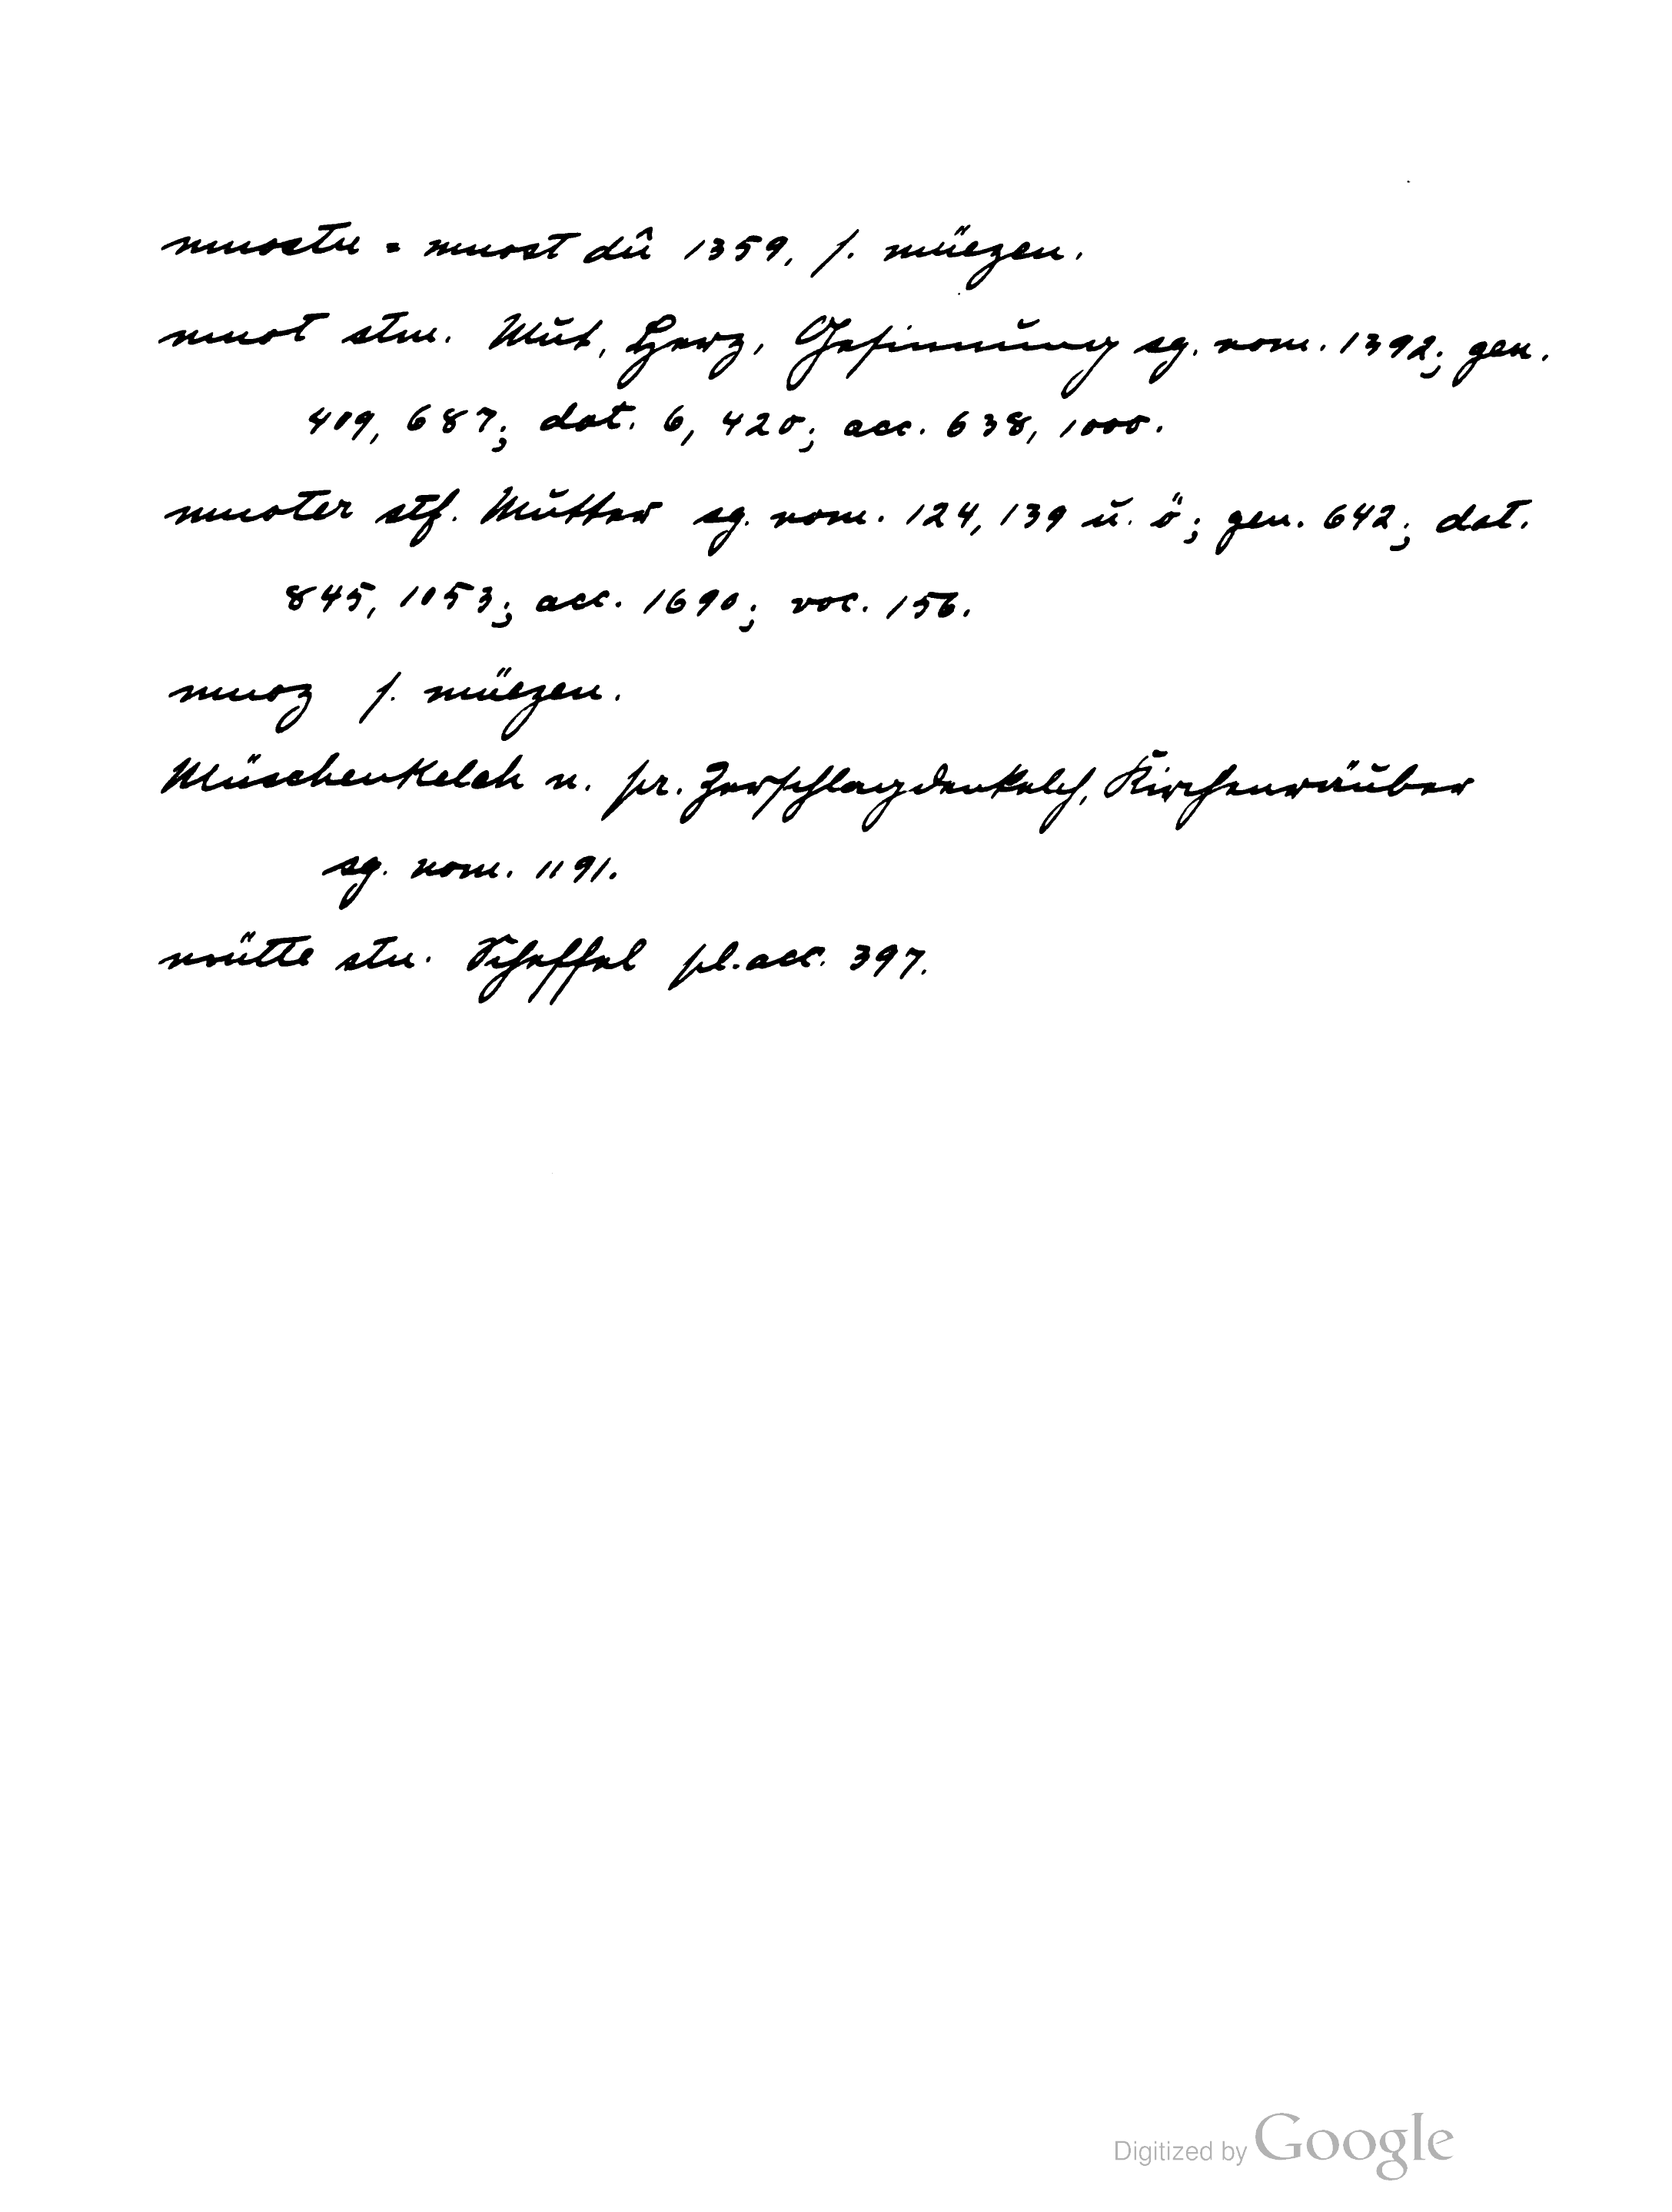 muostu = muost dû 1359, s. müezen.
muot stm. Mut, Herz, Gesinnung sg. nom. 1392; gen.
409, 687; dat. 6, 420; acc. 638, 1000.
muoter stf. Mutter sg. nom. 124, 139 u. ö; gen. 642; dat.
845, 1053; acc. 1690; voc. 156.
muoz s. müezen.
Müschenkelch n. pr. Zerschlagdenkelch, Kirchenräuber
sg. nom. 1191.
mütte stn. Scheffel pl. acc. 397.
Digitized by Google